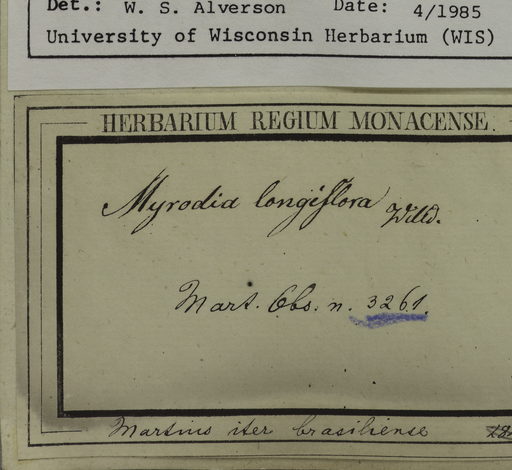 Det.: W. S. Alverson Date: 4/1985
University of Wisconsin Herbarium (WIS)
HERBARIUM REGIUM MONACENSE.
Myrodia longiflora Willd.
Mart. Obs. n. 3261.
Martius iter brasiliense